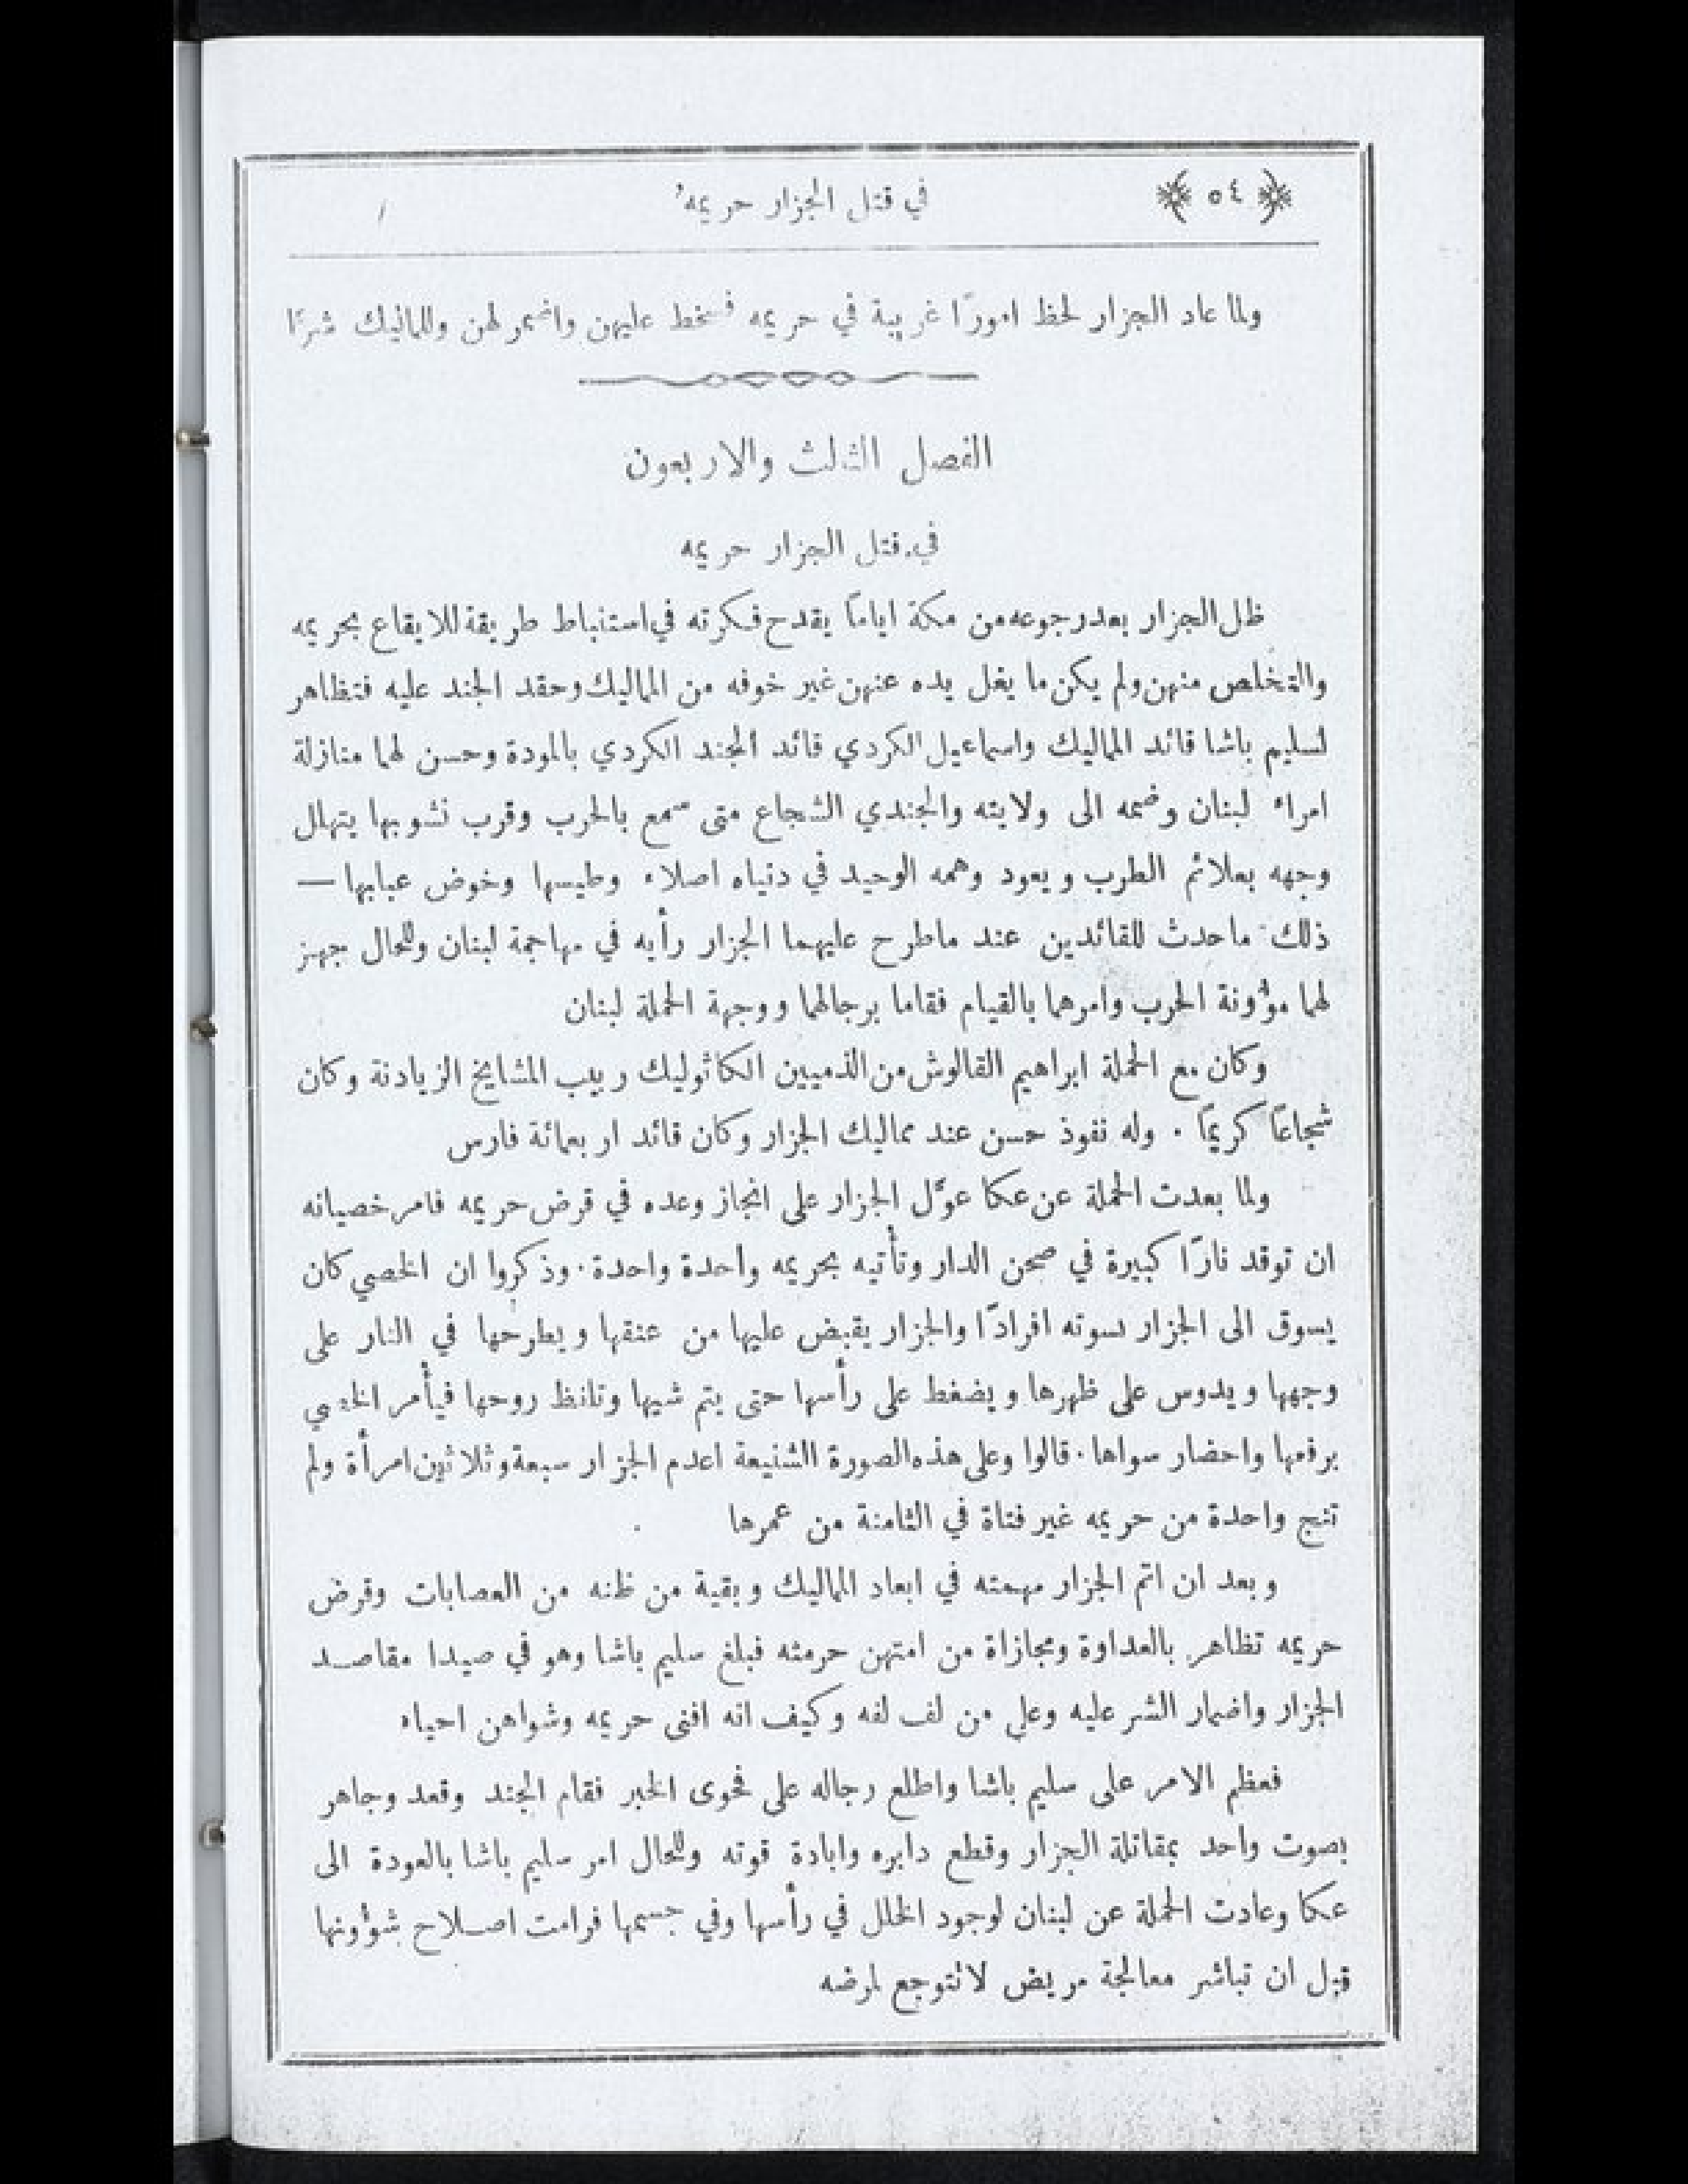 ﴿ ٥٤ ﴾
في قتل الجزار حريمه
ولما عاد الجزار لحظ امورًا غريبة في حريمه فسخط عليهن واضمر لهن وللماليك شرًا
الفصل الثالث والاربعون
في قتل الجزار حريمه
ظل الجزار بعد رجوعه من مكة ايامًا يقدح فكرته في استنباط طريقة للايقاع بحريمه
والتخلص منهن ولم يكن ما يغل يده عنهن غير خوفه من المماليك وحقد الجند عليه فتظاهر
لسليم باشا قائد المماليك واسماعيل الكردي قائد الجند الكردي بالمودة وحسن لهما منازلة
امراء لبنان وضمه الى ولايته والجندي الشجاع متى سمع بالحرب وقرب نشوبها يتهلل
وجهه بعلائم الطرب ويعود وهمه الوحيد في دنياه اصلاء وطيسها وخوض عبابها —
ذلك ماحدث للقائدين عند ماطرح عليهما الجزار رأيه في مهاجمة لبنان وللحال جهز
لهما مؤونة الحرب وامرهما بالقيام فقاما برجالهما ووجهة الحملة لبنان
وكان مع الحملة ابراهيم القالوش من الذميين الكاثوليك ربيب المشايخ الزيادنة وكان
شجاعًا كريمًا . وله نفوذ حسن عند مماليك الجزار وكان قائد اربعمائة فارس
ولما بعدت الحملة عن عكا عوَّل الجزار على انجاز وعده في قرض حريمه فامر خصيانه
ان توقد نارًا كبيرة في صحن الدار وتأتيه بحريمه واحدة واحدة. وذكروا ان الخصي كان
يسوق الى الجزار نسوته افرادًا والجزار يقبض عليها من عنقها ويطرحها في النار على
وجهها ويدوس على ظهرها ويضغط على رأسها حتى يتم شيها وتلفظ روحها فيأمر الخصي
برفعها واحضار سواها. قالوا وعلى هذه الصورة الشنيعة اعدم الجزار سبعة وثلاثين امرأة ولم
تنج واحدة من حريمه غير فتاة في الثامنة من عمرها
وبعد ان اتم الجزار مهمته في ابعاد المماليك وبقية من ظنه من العصابات وقرض
حريمه تظاهر بالعداوة ومجازاة من امتهن حرمته فبلغ سليم باشا وهو في صيدا مقاصد
الجزار واضمار الشر عليه وعلى من لف لفه وكيف انه افنى حريمه وشواهن احياء
فعظم الامر على سليم باشا واطلع رجاله على فحوى الخبر فقام الجند وقعد وجاهر
بصوت واحد بمقاتلة الجزار وقطع دابره وابادة قوته وللحال امر سليم باشا بالعودة الى
عكا وعادت الحملة عن لبنان لوجود الخلل في رأسها وفي جسمها فرامت اصلاح شؤونها
قبل ان تباشر معالجة مريض لاتتوجع لمرضه